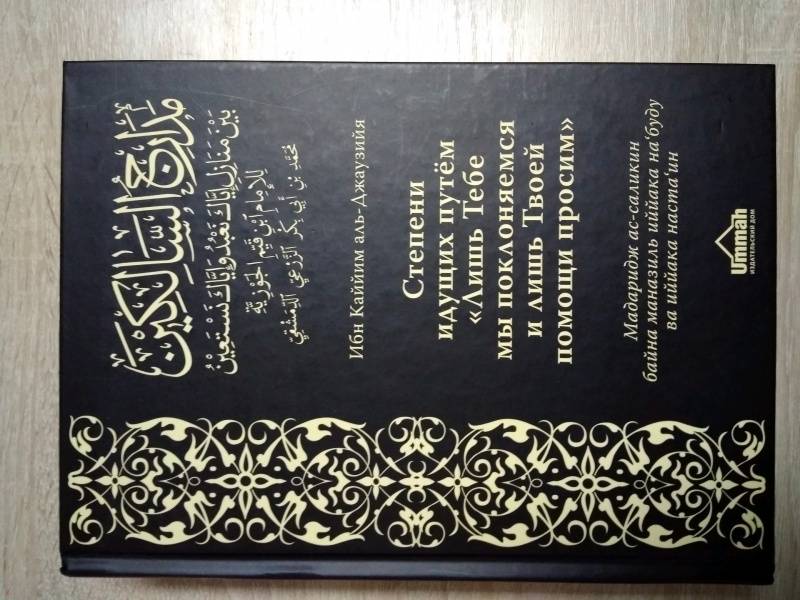 مَدَارِجُ السَّالِكِينَ
بَيْنَ مَنَازِلِ إِيَّاكَ نَعْبُدُ وَإِيَّاكَ نَسْتَعِينُ
لِلإِمَامِ ابْنِ قَيِّمِ الجَوْزِيَّةِ
مُحَمَّدِ بْنِ أَبِي بَكْرٍ الزُّرَعِيِّ الدِّمَشْقِيِّ
Ибн Каййим аль-Джаузийя
Степени
идущих путём
«Лишь Тебе
мы поклоняемся
и лишь Твоей
помощи просим»
Мадаридж ас-саликин
байна маназиль иййака на‘буду
ва иййака наста‘ин
Ummah
ИЗДАТЕЛЬСКИЙ ДОМ